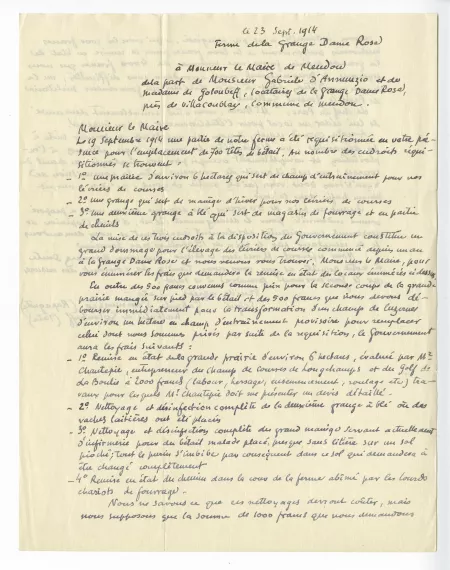 le 23 Sept. 1914
Ferme de la Grange Dame Rose
à Monsieur le Maire de Meudon
de la part de Monsieur Gabriele d'Annunzio et de
madame de Goloubeff, locataires de la Grange Dame Rose,
près de Villacoublay, commune de meudon.
Monsieur le Maire
Le 19 Septembre 1914 une partie de notre ferme a été requisitionnée en votre pré-
sence pour l'emplacement de 700 têtes de bétail. Au nombre des endroits réqui-
sitionnés se trouvent:
- 1º une prairie d'environ 6 hectares qui sert de champ d'entraînement pour nos
lévriers de courses
- 2º une grange qui sert de manège d'hiver pour nos lévriers de courses
- 3º une deuxième grange à blé qui sert de magasin de fourrage et en partie
de chenils
La mise de ces trois endroits à la disposition du Gouvernement constitue un
grand dommage pour l'élevage des lévriers de courses commencé depuis un an
à la Grange Dame Rose et nous venons vous trouver, Monsieur le Maire, pour
vous énumérer les frais que demandera la remise en état des locaux énumérés ci-dessus.
En outre des 500 francs convenus comme prix pour la seconde coupe de la grande
prairie mangée sur pied par le bétail et des 500 francs que nous devons dé-
bourser immédiatement pour la transformation d'un champ de luzerne
d'environ un hectare en champ d'entraînement provisoire pour remplacer
celui dont nous sommes privés par suite de la requisition, le Gouvernement
aura les frais suivants:
- 1º Remise en état de la grande prairie d'environ 6 hectares, évaluée par Mr
Chantepie, entrepreneur du champ de courses de Longchamps et du Golf de
La Boulie à 2000 francs (labour, hersage, ensemencement, roulage etc.) tra-
vaux pour lesquels Mr Chantepie doit me présenter un devis détaillé.
- 2º Nettoyage et désinfection complète de la deuxième grange à blé où des
vaches laitières ont été placés
- 3º Nettoyage et désinfection complète du grand manège servant actuellement
d'infirmerie pour du bétail malade placé, presque sans litière sur un sol
pioché; tout le purin s'imbibe par conséquent dans ce sol qui demandera à
être changé complètement
- 4º Remise en état du chemin dans la cour de la ferme abimé par les lourds
chariots de fourrage.
Nous ne savons ce que ces nettoyages devront coûter, mais
nous supposons que la somme de 1000 francs que nous demandons